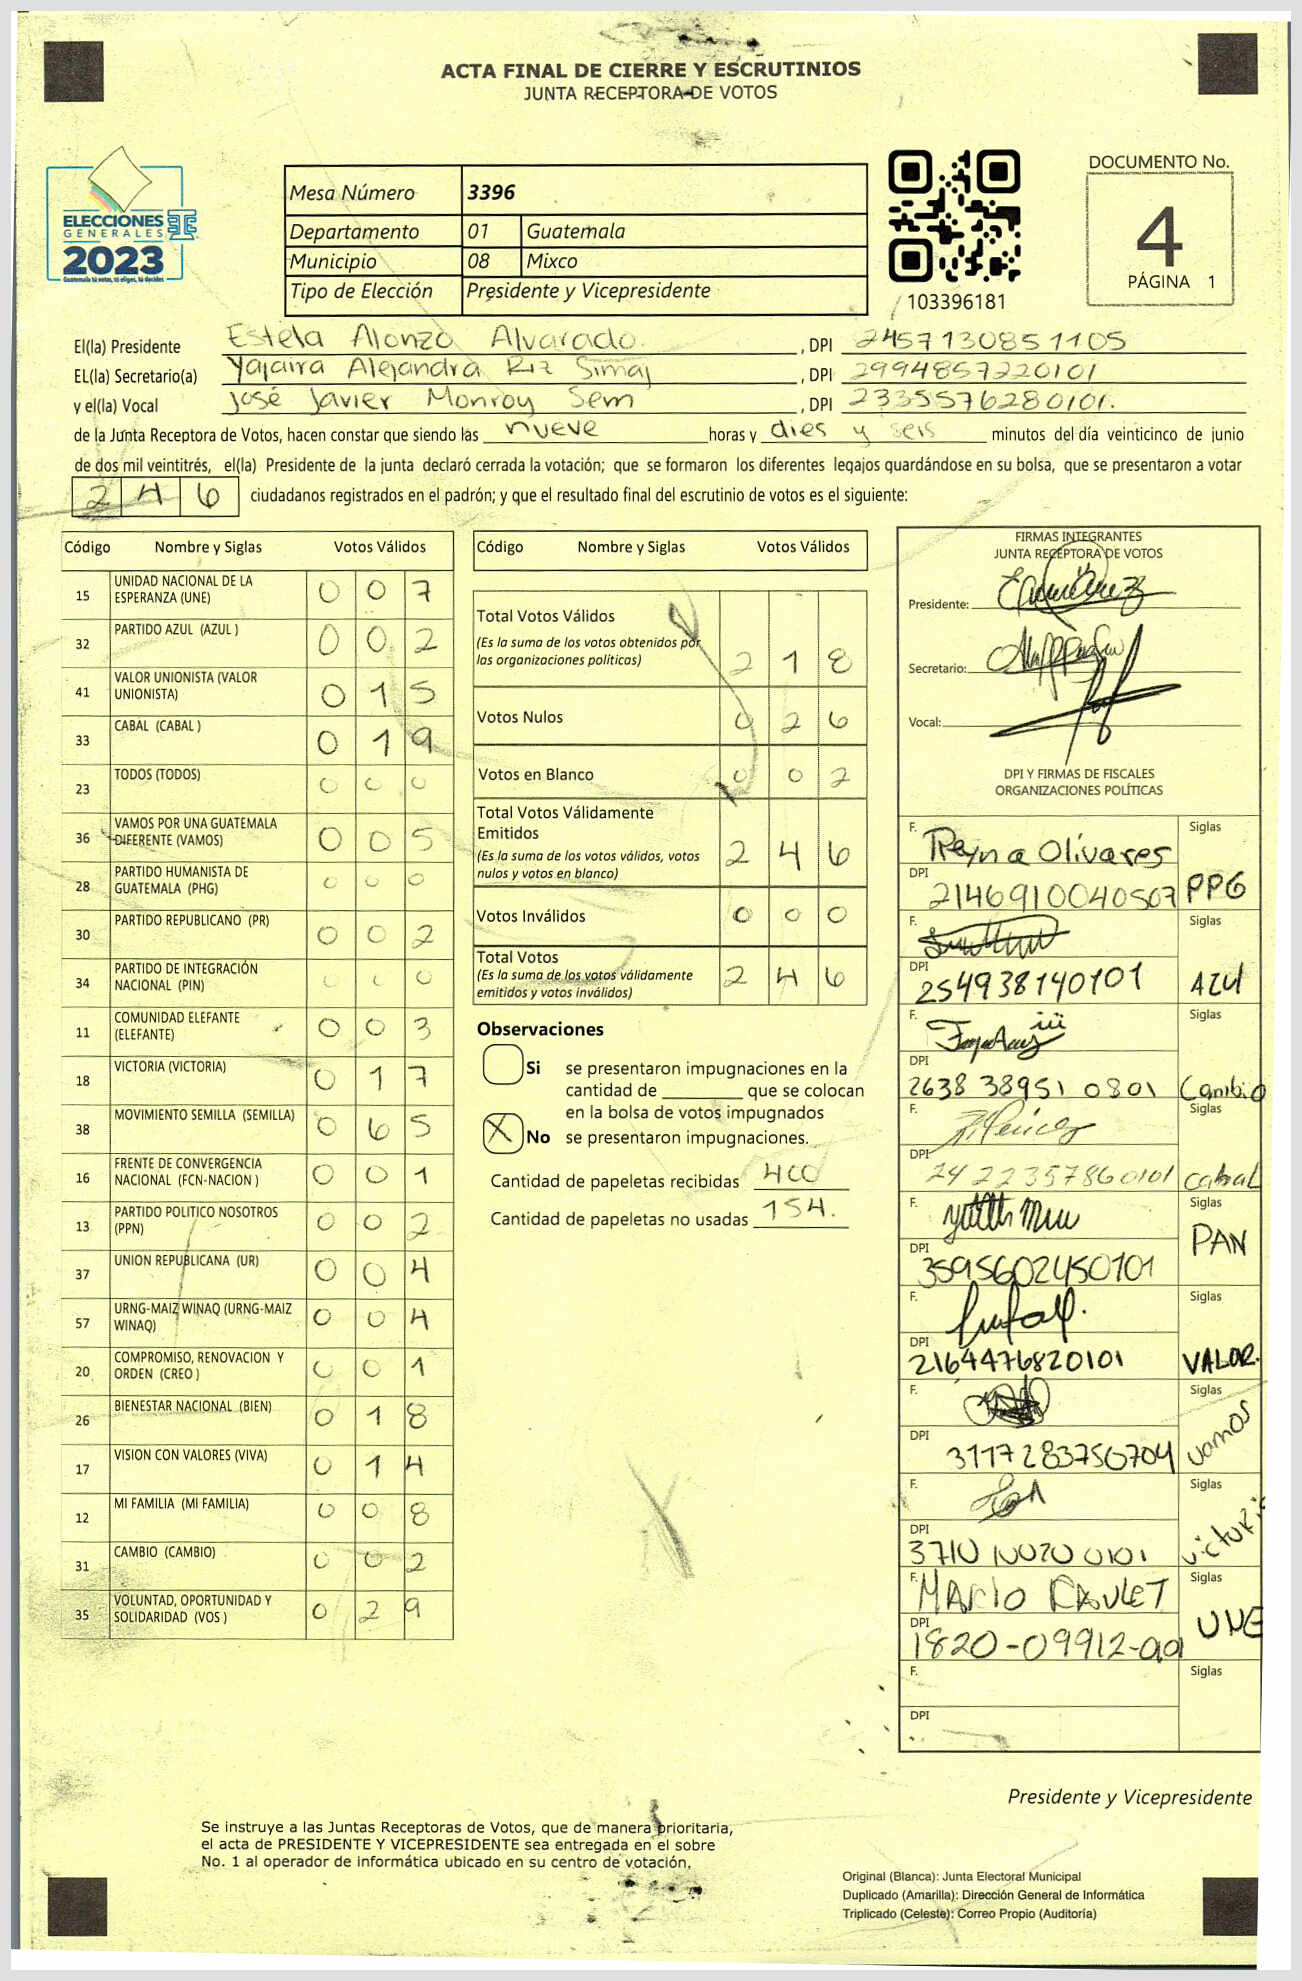 ACTA FINAL DE CIERRE Y ESCRUTINIOS
JUNTA RECEPTORA DE VOTOS
ELECCIONES
GENERALES
2023
Guatemala tú votas, tú eliges, tú decides
Mesa Número 3396
Departamento 01 Guatemala
Municipio 08 Mixco
Tipo de Elección Presidente y Vicepresidente
103396181
DOCUMENTO No.
4
PÁGINA 1
El(la) Presidente Estela Alonzo Alvarado , DPI 2457130851105
EL(la) Secretario(a) Yajaira Alejandra Simaj , DPI 2994857220101
y el(la) Vocal José Javier Monroy Sem , DPI 2335576280101.
de la Junta Receptora de Votos, hacen constar que siendo las nueve horas y dies y seis minutos del día veinticinco de junio
de dos mil veintitrés, el(la) Presidente de la junta declaró cerrada la votación; que se formaron los diferentes legajos guardándose en su bolsa, que se presentaron a votar
246 ciudadanos registrados en el padrón; y que el resultado final del escrutinio de votos es el siguiente:
Código Nombre y Siglas Votos Válidos
15 UNIDAD NACIONAL DE LA ESPERANZA (UNE) 0 0 7
32 PARTIDO AZUL (AZUL ) 0 0 2
41 VALOR UNIONISTA (VALOR UNIONISTA) 0 1 5
33 CABAL (CABAL ) 0 1 9
23 TODOS (TODOS) 0 0 0
36 VAMOS POR UNA GUATEMALA DIFERENTE (VAMOS) 0 0 5
28 PARTIDO HUMANISTA DE GUATEMALA (PHG) 0 0 0
30 PARTIDO REPUBLICANO (PR) 0 0 2
34 PARTIDO DE INTEGRACIÓN NACIONAL (PIN) 0 0 0
11 COMUNIDAD ELEFANTE (ELEFANTE) 0 0 3
18 VICTORIA (VICTORIA) 0 1 7
38 MOVIMIENTO SEMILLA (SEMILLA) 0 6 5
16 FRENTE DE CONVERGENCIA NACIONAL (FCN-NACION ) 0 0 1
13 PARTIDO POLITICO NOSOTROS (PPN) 0 0 2
37 UNION REPUBLICANA (UR) 0 0 4
57 URNG-MAIZ WINAQ (URNG-MAIZ WINAQ) 0 0 4
20 COMPROMISO, RENOVACION Y ORDEN (CREO ) 0 0 1
26 BIENESTAR NACIONAL (BIEN) 0 1 8
17 VISION CON VALORES (VIVA) 0 1 4
12 MI FAMILIA (MI FAMILIA) 0 0 8
31 CAMBIO (CAMBIO) 0 0 2
35 VOLUNTAD, OPORTUNIDAD Y SOLIDARIDAD (VOS ) 0 2 9
Código Nombre y Siglas Votos Válidos
Total Votos Válidos 2 1 8
(Es la suma de los votos obtenidos por
las organizaciones políticas)
Votos Nulos 0 2 6
Votos en Blanco 0 0 2
Total Votos Válidamente
Emitidos 2 4 6
(Es la suma de los votos válidos, votos
nulos y votos en blanco)
Votos Inválidos 0 0 0
Total Votos 2 4 6
(Es la suma de los votos válidamente
emitidos y votos inválidos)
Observaciones
Si se presentaron impugnaciones en la
cantidad de ________ que se colocan
en la bolsa de votos impugnados
X No se presentaron impugnaciones.
Cantidad de papeletas recibidas 400
Cantidad de papeletas no usadas 154.
FIRMAS INTEGRANTES
JUNTA RECEPTORA DE VOTOS
Presidente:
Secretario:
Vocal:
DPI Y FIRMAS DE FISCALES
ORGANIZACIONES POLÍTICAS
F. Reyna Olivares Siglas
DPI 2146910040507 PPG
F. Siglas
DPI 254938140101 AZUL
F. Siglas
DPI 2638 38951 0801 Cambio
F. Siglas
DPI 2422357860101 Cabal
F. Siglas
DPI 3595602450101 PAN
F. Siglas
DPI 2164476820101 VALOR.
F. Siglas
DPI 3117283750704 vamos
F. Siglas
DPI 3710 10020 0101 victoria
F. MARIO Siglas
DPI 1820-09912- UNE
F. Siglas
DPI
Presidente y Vicepresidente
Se instruye a las Juntas Receptoras de Votos, que de manera prioritaria,
el acta de PRESIDENTE Y VICEPRESIDENTE sea entregada en el sobre
No. 1 al operador de informática ubicado en su centro de votación.
Original (Blanca): Junta Electoral Municipal
Duplicado (Amarilla): Dirección General de Informática
Triplicado (Celeste): Correo Propio (Auditoría)